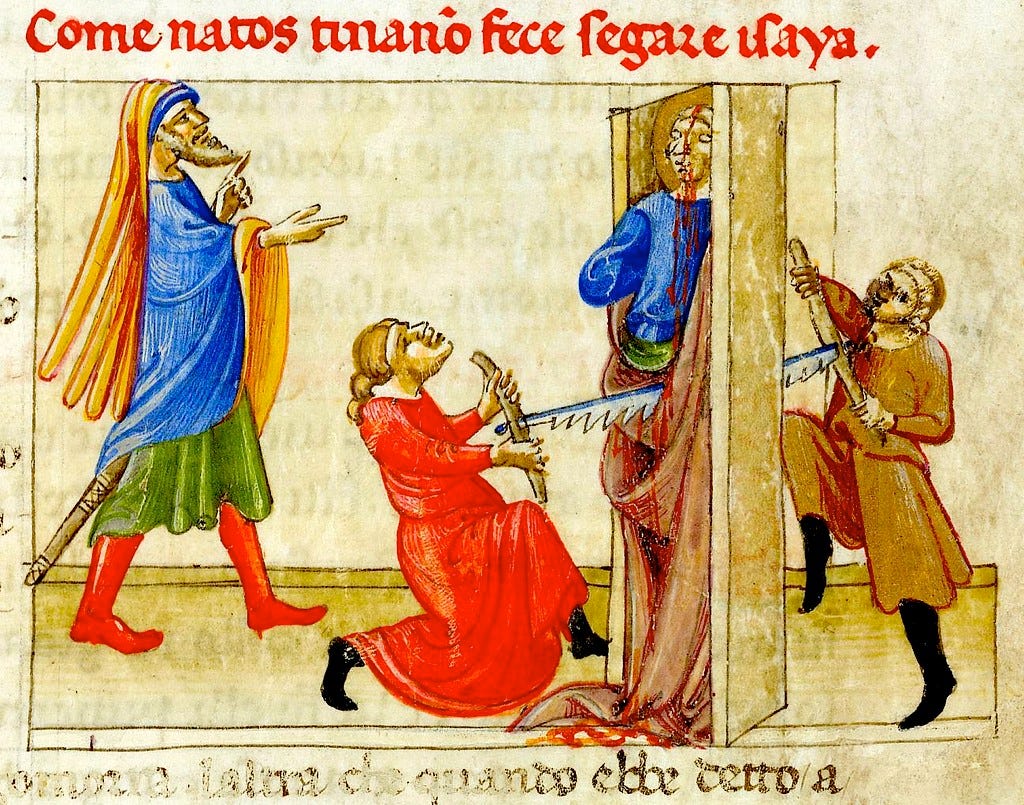 Come natos tinanõ fece ſegare iſaya.
laltra che quando ebbe detto/a